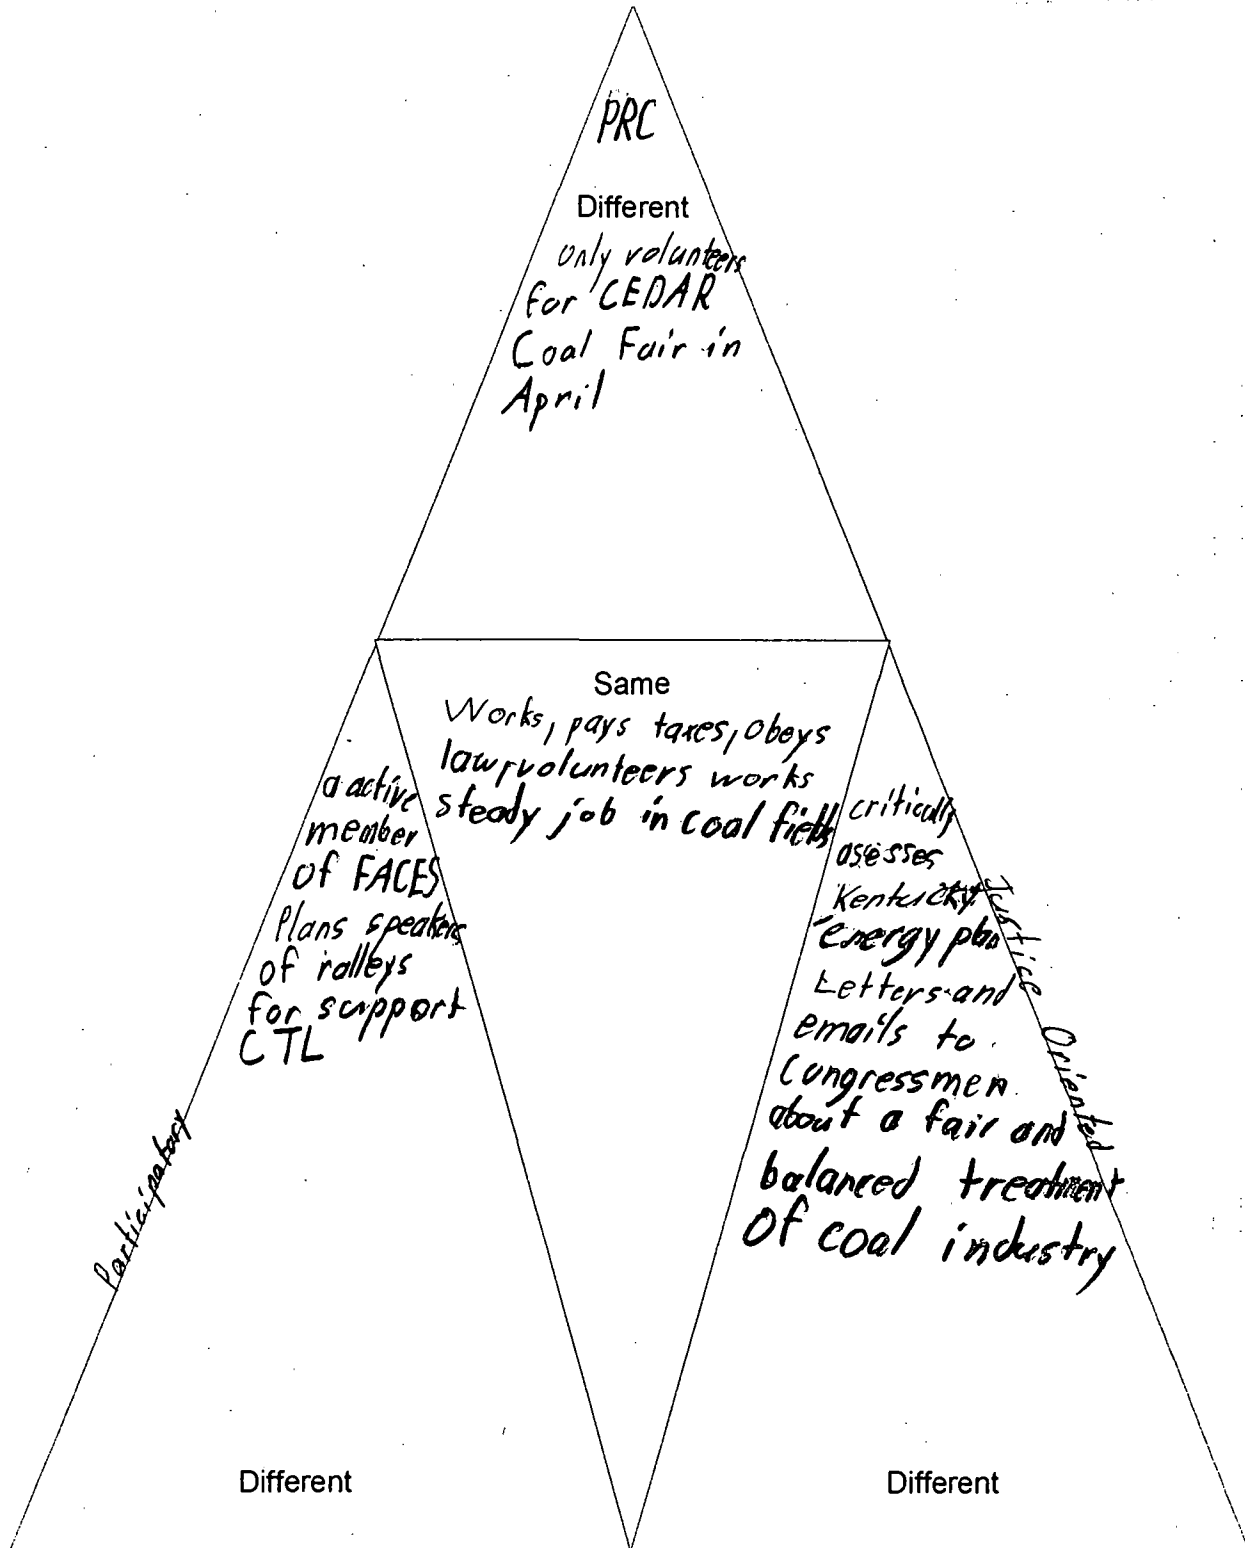 PRC
Different
only volunteers
for CEDAR
Coal Fair in
April
Same
Works, pays taxes, obeys
law, volunteers works
steady job in coal fields
a active
member
of FACES
Plans speakers
of ralleys
for support
CTL
Participatory
Different
critically
asesses
Kentucky
energy plan
Letters and
emails to
Congressmen
about a fair and
balanced treatment
of coal industry
Justice Oriented
Different